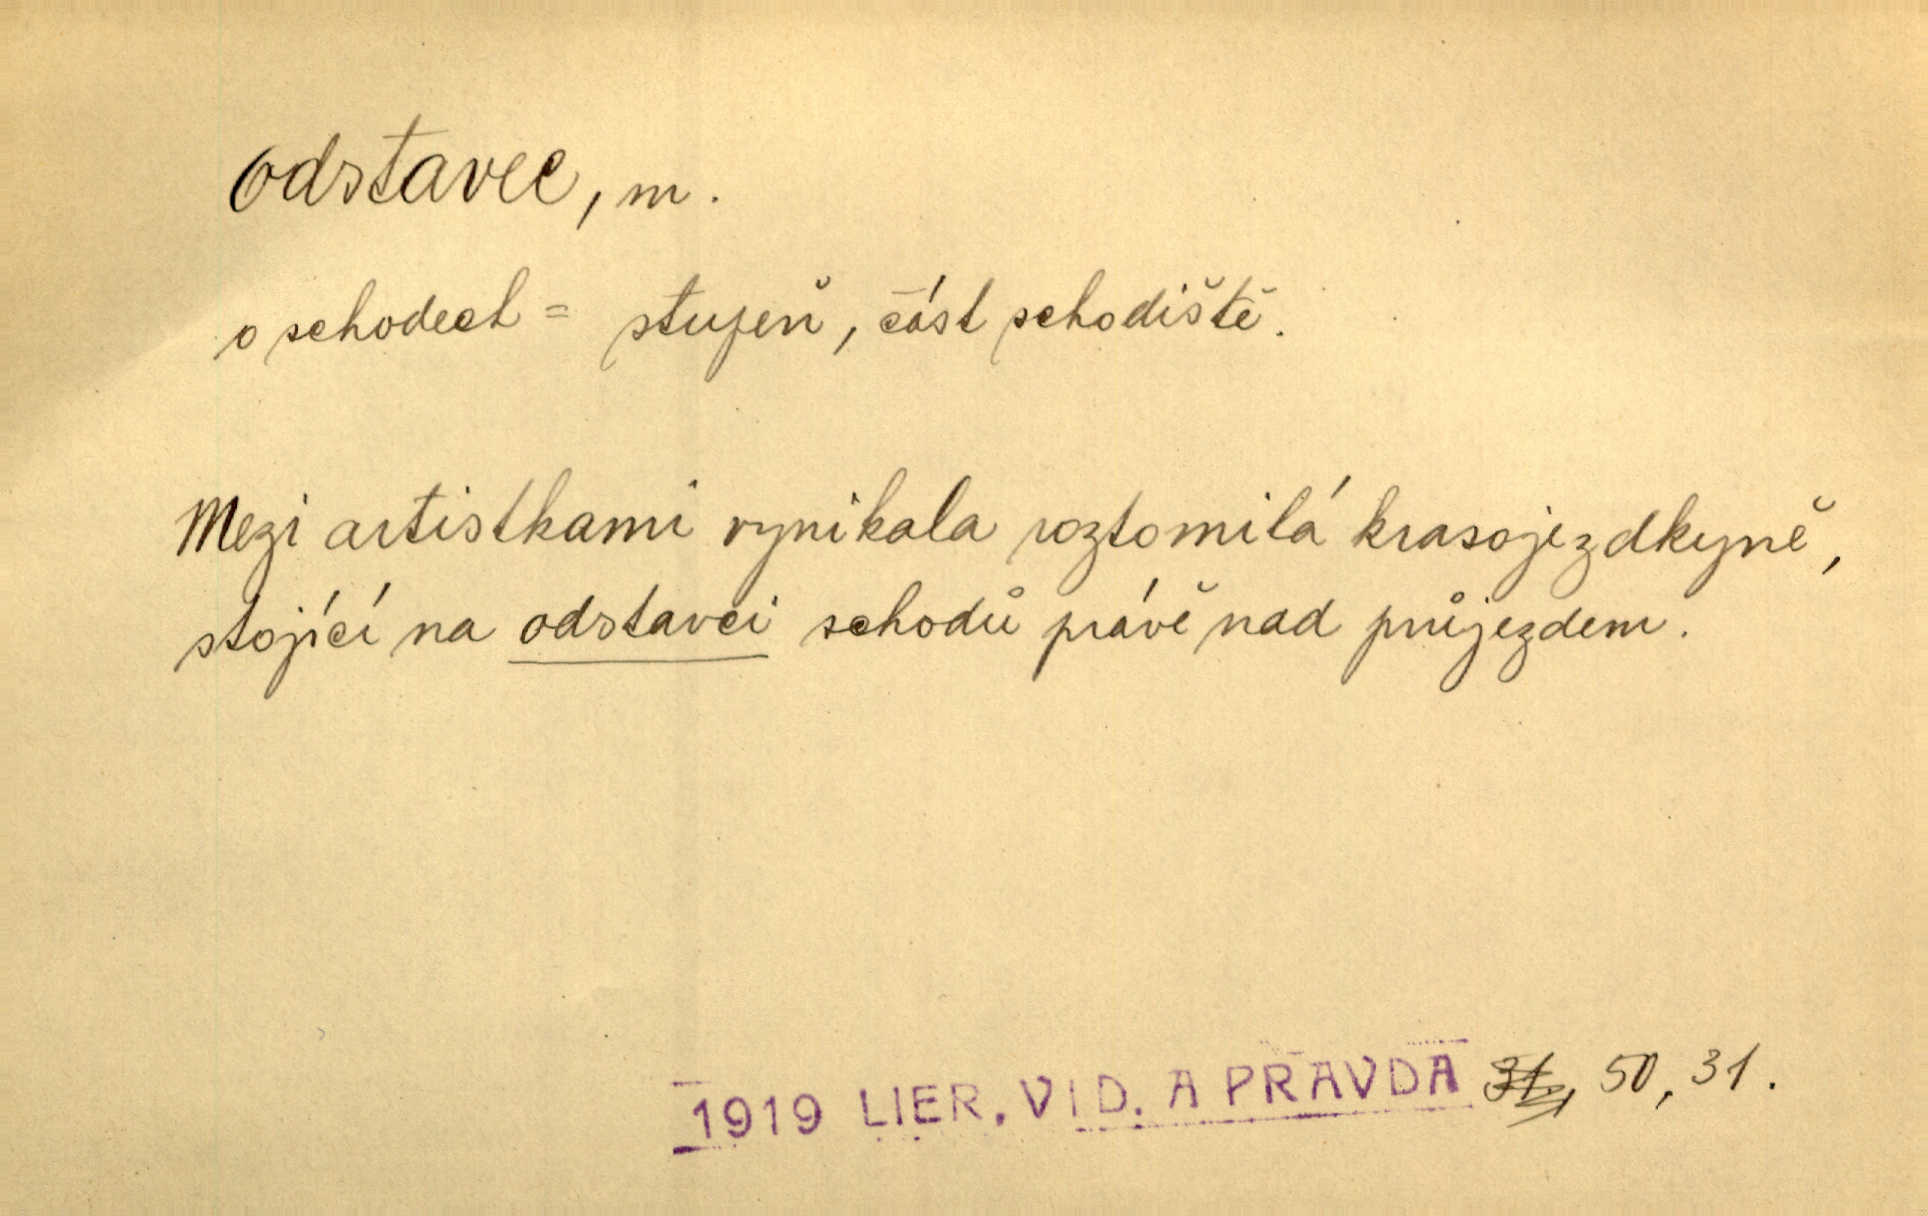 odstavec, m.
o schodech = stupeň, část schodiště.
Mezi artistkami vynikala roztomilá krasojezdkyně,
stojící na odstavci schodů právě nad průjezdem.
1919 LIER, VID. A PRAVDA 50, 31.